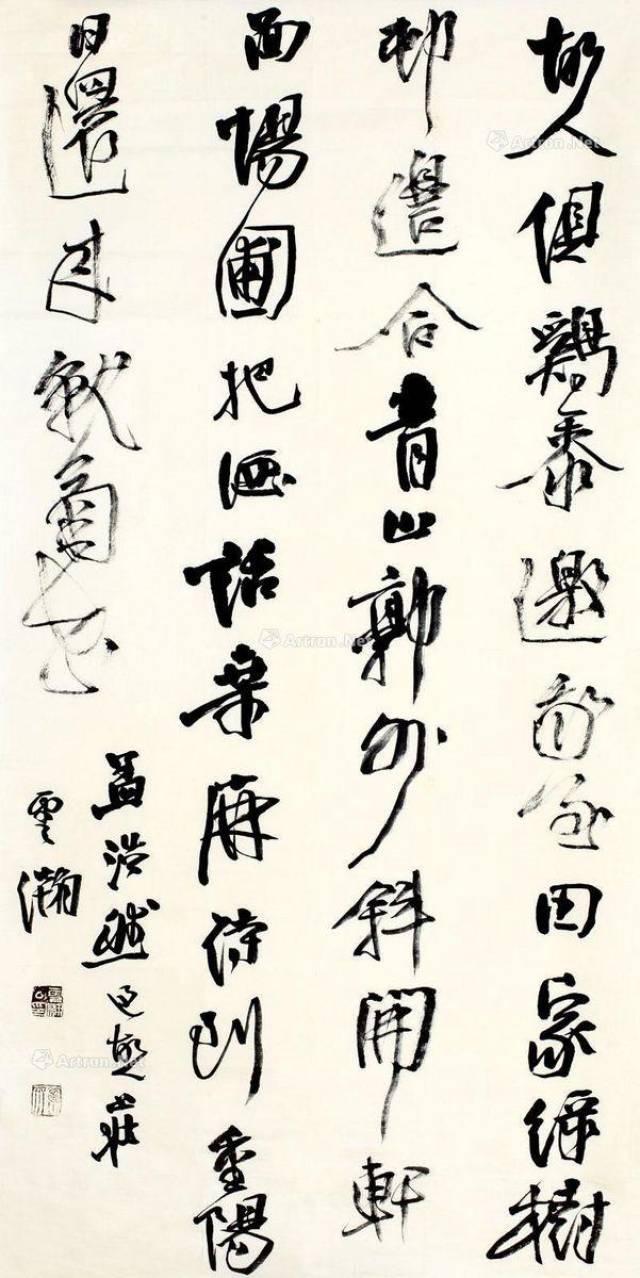 故人俱鷄黍邀至田家緑樹
邨邊合青山郭外斜開軒
面場圃把酒話桑麻待到重陽
日還來就菊花
孟浩然過故人莊
雲瀚
Artron.Net
Artron.Net
Artron.Net